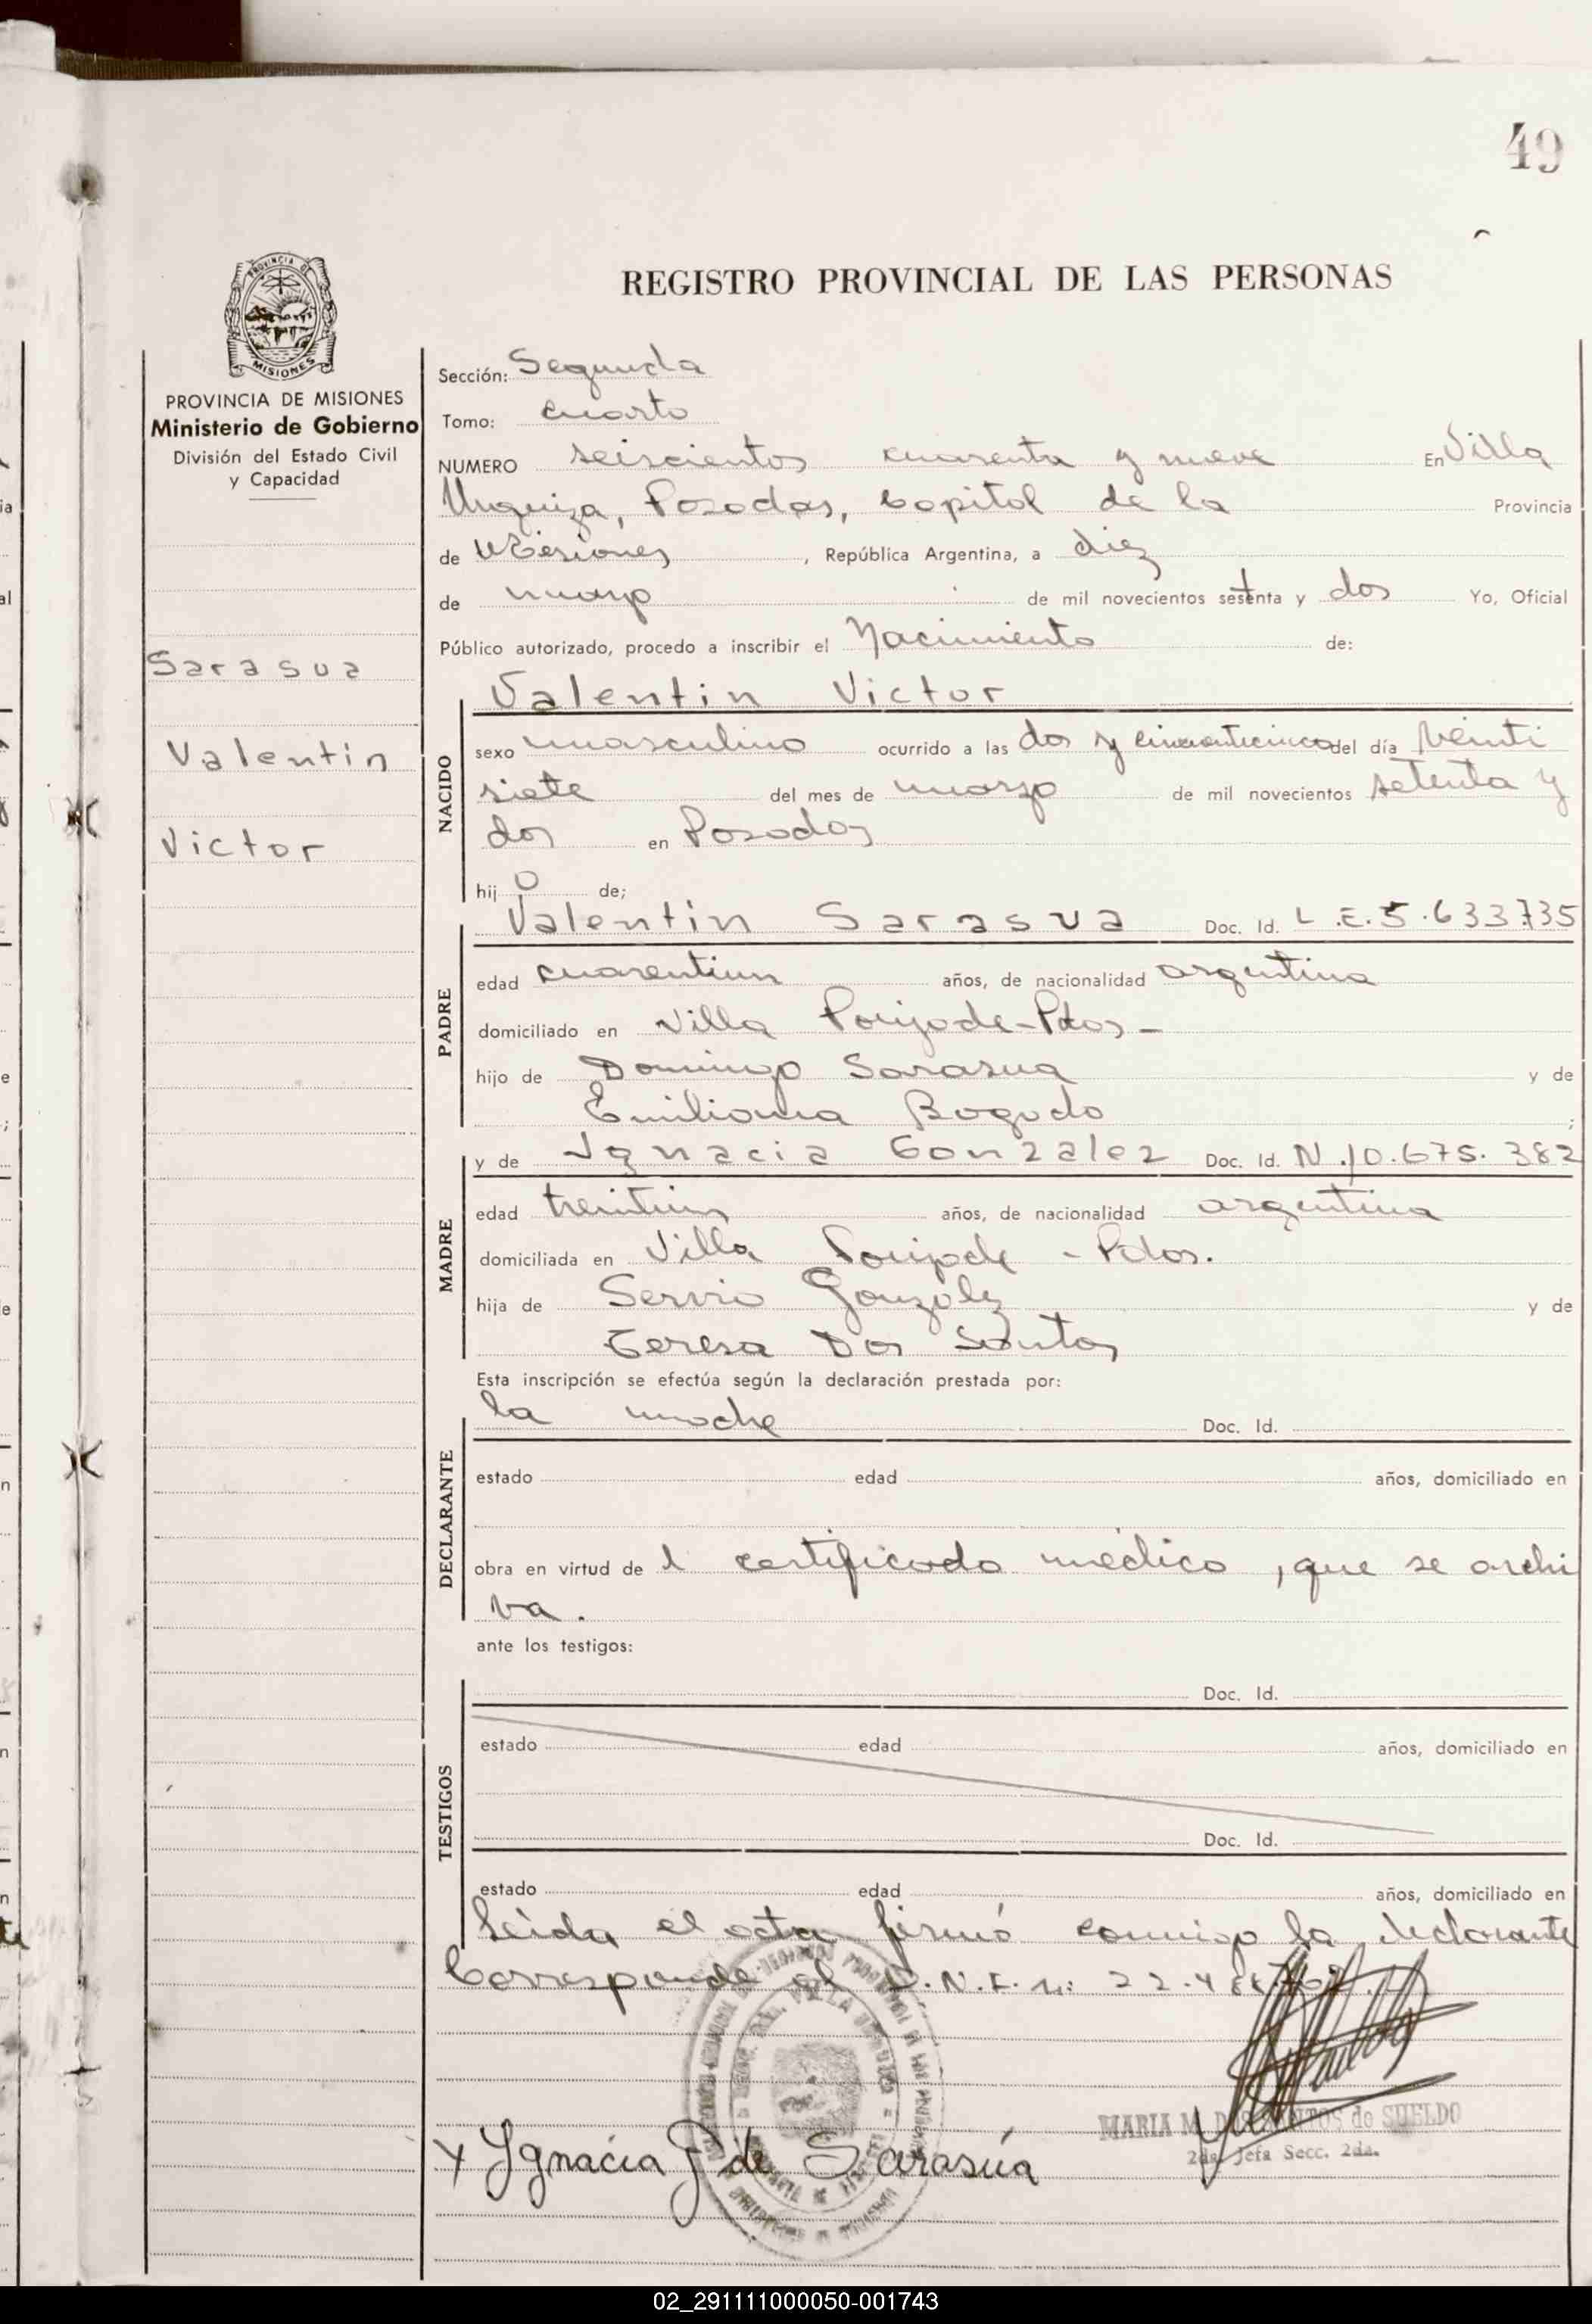 49
REGISTRO PROVINCIAL DE LAS PERSONAS
PROVINCIA DE
MISIONES
PROVINCIA DE MISIONES
Ministerio de Gobierno
División del Estado Civil
y Capacidad
Sarasua
Valentin
Victor
Sección: Segunda
Tomo: cuarto
NUMERO seiscientos cuarenta y nueve En Villa
Urquiza, Posadas, Capital de la Provincia
de Misiones, República Argentina, a diez
de mayo de mil novecientos setenta y dos Yo, Oficial
Público autorizado, procedo a inscribir el Nacimiento de:
Valentin Victor
NACIDO
sexo masculino ocurrido a las dos y cincuenticinco del día veinti
siete del mes de marzo de mil novecientos setenta y
dos en Posadas
hij o de;
Valentin Sarasua Doc. Id. L.E.5.633735
PADRE
edad cuarentiun años, de nacionalidad argentina
domiciliado en Villa -Pdas-
hijo de Domingo Sarasua y de
Emiliana Bogado ;
y de Ignacia Gonzalez Doc. Id. N.10.675.382
MADRE
edad treintiun años, de nacionalidad argentina
domiciliada en Villa - Pdas.
hija de Servio Gonzalez y de
Teresa Dos Santos
Esta inscripción se efectúa según la declaración prestada por:
la madre Doc. Id.
DECLARANTE
estado edad años, domiciliado en
obra en virtud de l certificado médico, que se archi
va.
ante los testigos:
Doc. Id.
TESTIGOS
estado edad años, domiciliado en
Doc. Id.
estado edad años, domiciliado en
Leida el acta firmó conmigo la declarante
Corresponde al D.N.I. n: 22.4
MARIA M. DOS SANTOS de SUELDO
2da. Jefa Secc. 2da.
x Ygnacia G de Sarasúa
02_291111000050-001743